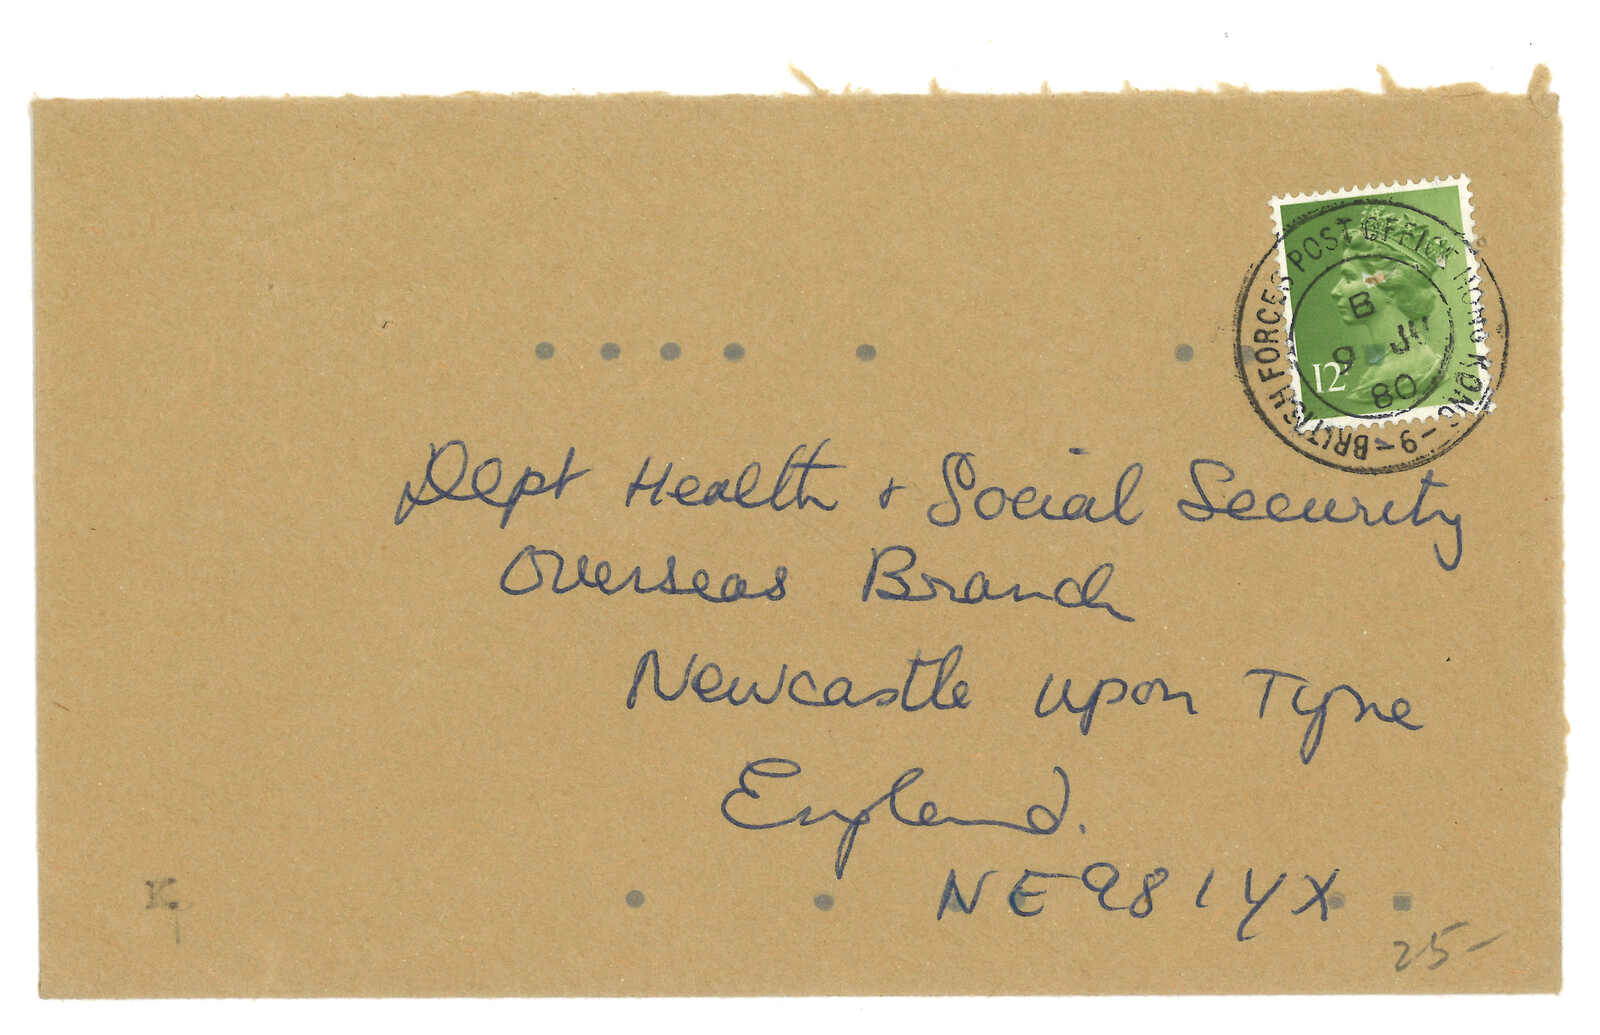 BRITISH FORCES POST OFFICE HONG KONG -9-
B
9 JU
80
12P
Dept Health + Social Security
Overseas Branch
Newcastle upon Tyne
England.
NE98 1YX
K.
25-